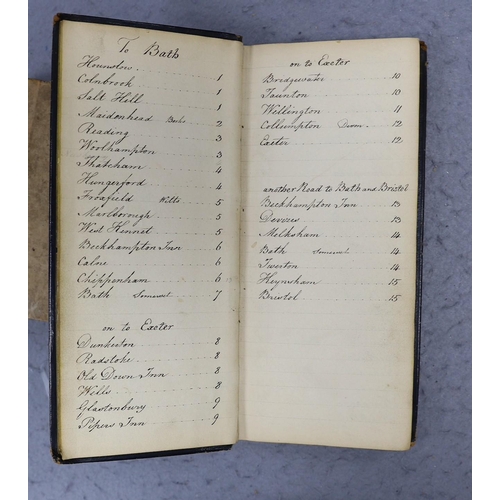 To Bath
Hounslow 1
Colnbrook 1
Salt Hill 1
Maidenhead Berks 2
Reading 3
Woolhampton 3
Thatcham 4
Hungerford 4
Froxfield Wilts 5
Marlborough 5
West Kennet 5
Beckhampton Inn 6
Calne 6
Chippenham 6
Bath Somerset 7
on to Exeter
Dunkerton 8
Radstoke 8
Old Down Inn 8
Wells 8
Glastonbury 9
Pipers Inn 9
on to Exeter
Bridgewater 10
Taunton 10
Wellington 11
Collumpton Devon 12
Exeter 12
another Road to Bath and Bristol
Beckhampton Inn 13
Devizes 13
Melksham 14
Bath Somerset 14
Twerton 14
Keynsham 15
Bristol 15